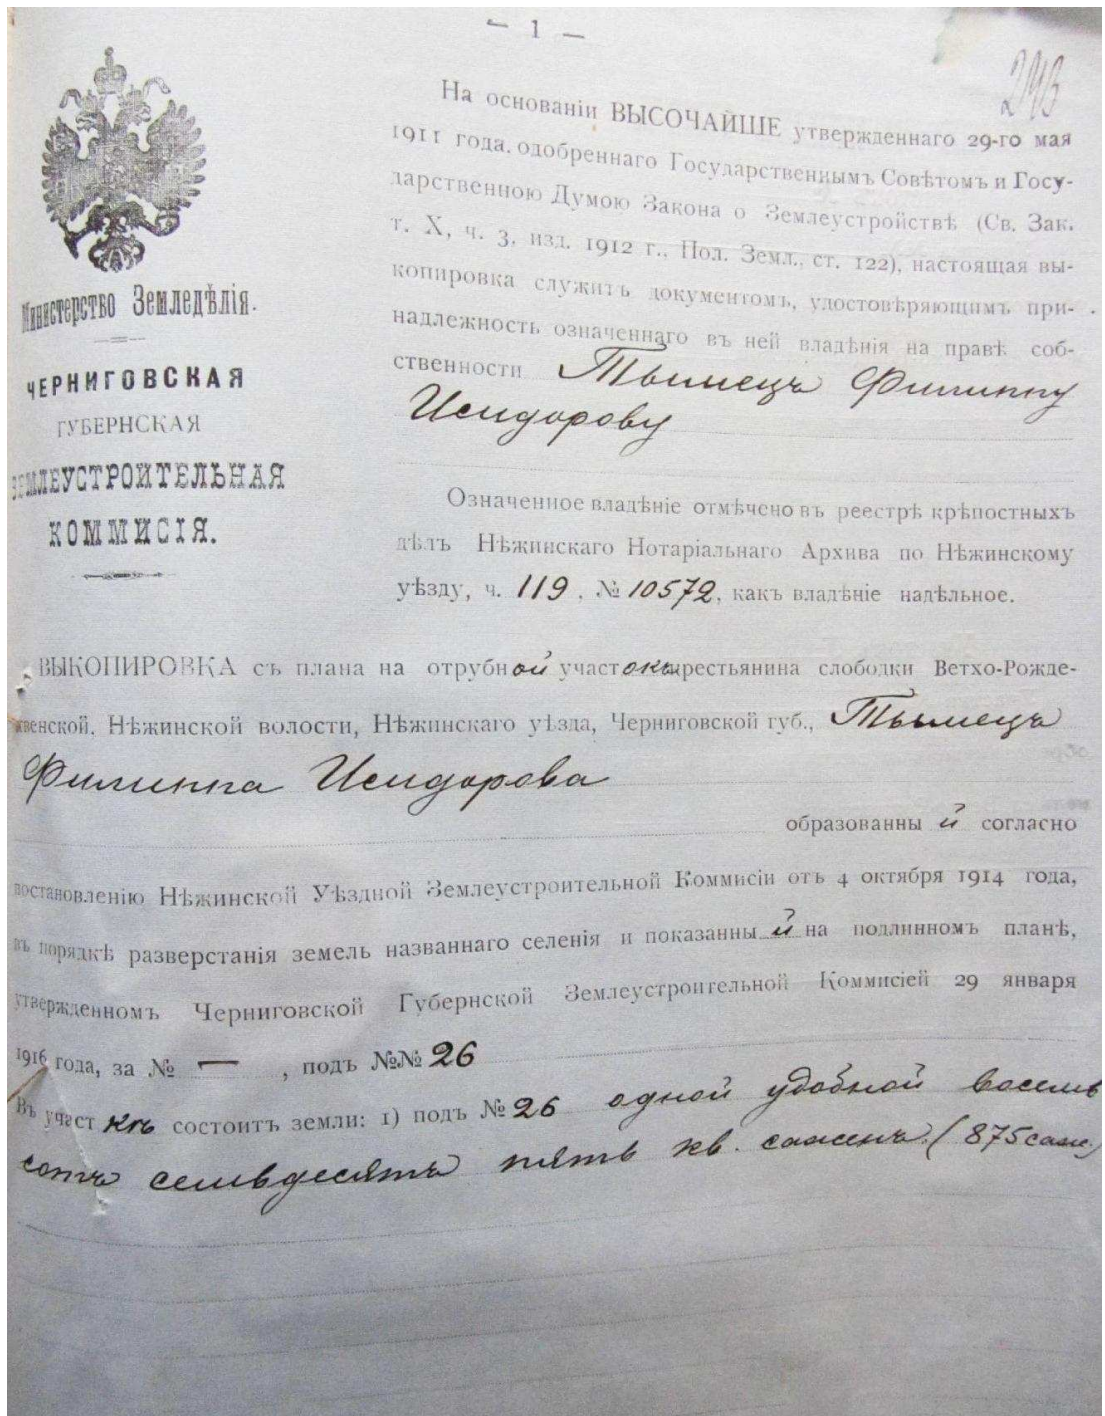 — 1 —
293
Министерство Земледѣлія.
ЧЕРНИГОВСКАЯ
ГУБЕРНСКАЯ
ЗЕМЛЕУСТРОИТЕЛЬНАЯ
КОММИСІЯ.
На основаніи ВЫСОЧАЙШЕ утвержденнаго 29-го мая
1911 года. одобреннаго Государственнымъ Совѣтомъ и Госу-
дарственною Думою Закона о Землеустройствѣ (Св. Зак.
т. X, ч. 3, изд. 1912 г., Пол. Земл., ст. 122), настоящая вы-
копировка служитъ документомъ, удостовѣряющимъ при-
надлежность означеннаго въ ней владѣнія на правѣ соб-
ственности Тымецъ Филиппу
Исидорову
Означенное владѣніе отмѣчено въ реестрѣ крѣпостныхъ
дѣлъ Нѣжинскаго Нотаріальнаго Архива по Нѣжинскому
уѣзду, ч. 119, № 10572, какъ владѣніе надѣльное.
ВЫКОПИРОВКА съ плана на отрубной участокъ крестьянина слободки Ветхо-Рожде-
ственской, Нѣжинской волости, Нѣжинскаго уѣзда, Черниговской губ., Тымецъ
Филиппа Исидорова
образованный согласно
постановленію Нѣжинской Уѣздной Землеустроительной Коммисіи отъ 4 октября 1914 года,
въ порядкѣ разверстанія земель названнаго селенія и показанный на подлинномъ планѣ,
утвержденномъ Черниговской Губернской Землеустроительной Коммисіей 29 января
1916 года, за № — , подъ №№ 26
Въ участкѣ состоитъ земли: 1) подъ № 26 одной удобной восемь
сотъ семьдесятъ пять кв. саженъ. (875 саж.)